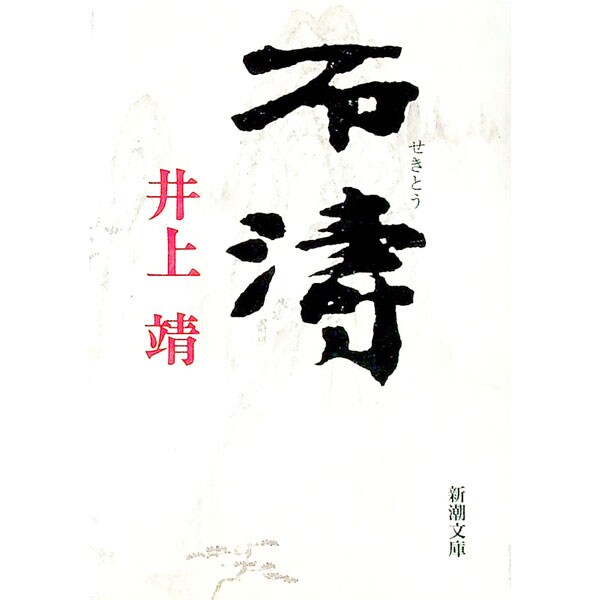 石濤
せきとう
井上 靖
新潮文庫